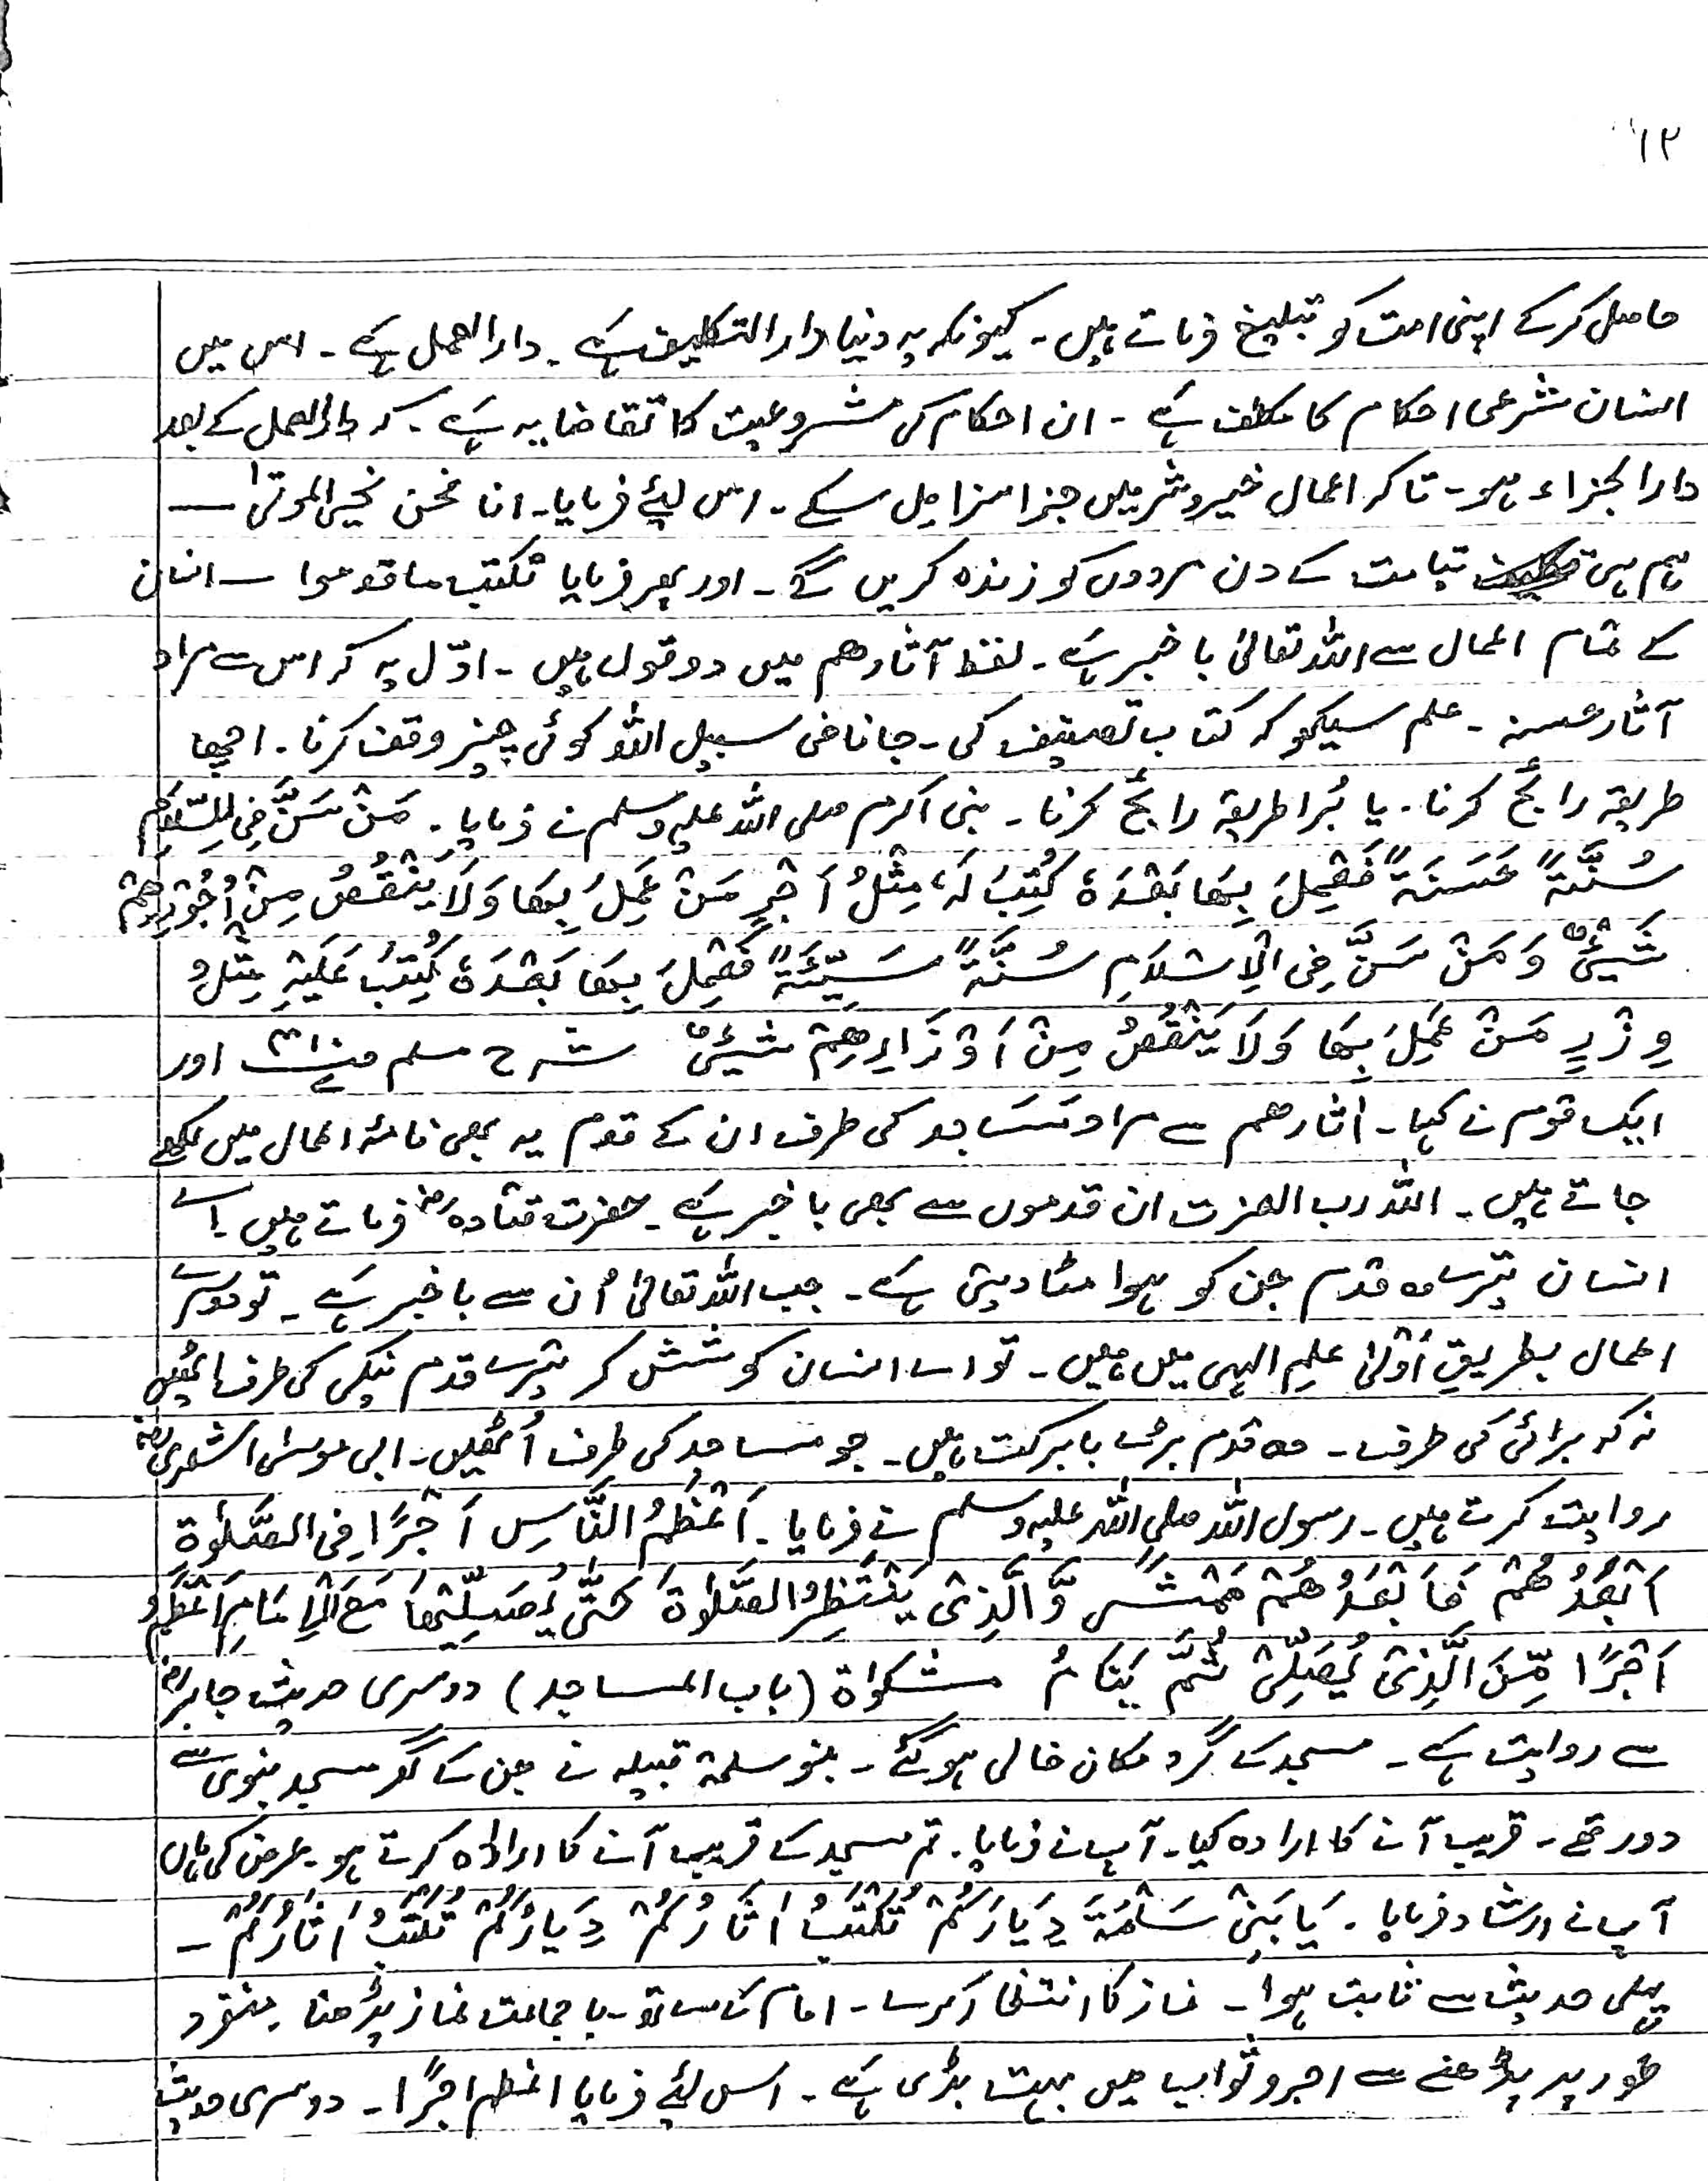 ۱۲
حاصل کرکے اپنی امت کو تبلیغ فرماتے ہیں۔ کیونکہ یہ دنیا دار التکلیف ہے۔ دار العمل ہے۔ اس میں
انسان شرعی احکام کا مکلف ہے۔ ان احکام کی مشروعیت کا تقاضا یہ ہے۔ کہ دار العمل کے بعد
دار الجزاء ہو۔ تا کہ اعمال خیر و شر میں جزا سزا مل سکے۔ اس لیئے فرمایا۔ انا نحن نحیی الموتیٰ —
ہم ہی قیامت کے دن مردوں کو زندہ کریں گے۔ اور پھر فرمایا نکتب ما قدموا — انسان
کے تمام اعمال سے اللہ تعالیٰ با خبر ہے۔ لفظ آثارھم میں دو قول ہیں۔ اوّل یہ کہ اس سے مراد
آثار حسنہ۔ علم سیکھو کہ کتاب تصنیف کی۔ جانا فی سبیل اللہ کوئی چیز وقف کرنا۔ اچھا
طریقہ رائج کرنا۔ یا بُرا طریقہ رائج کرنا۔ نبی اکرم صلی اللہ علیہ وسلم نے فرمایا۔ مَنْ سَنَّ فِی الْاِسْلَامِ
سُنَّۃً حَسَنَۃً فَعُمِلَ بِھَا بَعْدَہٗ کُتِبَ لَہٗ مِثْلُ اَجْرِ مَنْ عَمِلَ بِھَا وَلَا یَنْقُصُ مِنْ اُجُوْرِھِمْ
شَیْئٌ وَ مَنْ سَنَّ فِی الْاِسْلَامِ سُنَّۃً سَیِّئَۃً فَعُمِلَ بِھَا بَعْدَہٗ کُتِبَ عَلَیْہِ مِثْلُ
وِزْرِ مَنْ عَمِلَ بِھَا وَلَا یَنْقُصُ مِنْ اَوْزَارِھِمْ شَیْئٌ شرح مسلم اور
ایک قوم نے کہا۔ اٰثارھم سے مراد مَسَاجد کی طرف ان کے قدم یہ بھی نامۂ اعمال میں لکھے
جاتے ہیں۔ اللہ رب العزت ان قدموں سے بھی با خبر ہے۔ حضرت قتادہؓ فرماتے ہیں۔ اے
انسان تیرے وہ قدم جن کو ہوا مٹا دیتی ہے۔ جب اللہ تعالیٰ اُن سے با خبر ہے۔ تو دوسرے
اعمال بطریقِ اَوْلیٰ علمِ الہی میں ہیں۔ تو اے انسان کوشش کر تیرے قدم نیکی کی طرف اٹھیں
نہ کہ برائی کی طرف۔ وہ قدم بڑے بابرکت ہیں۔ جو مساجد کی طرف اُٹھیں۔ ابی موسیٰ اشعریؓ
روایت کرتے ہیں۔ رسول اللہ صلی اللہ علیہ وسلم نے فرمایا۔ اَعْظَمُ النَّاسِ اَجْرًا فِی الصَّلٰوۃِ
اَبْعَدُھُمْ فَاَبْعَدُھُمْ مَمْشًی وَّالَّذِیْ یَنْتَظِرُ الصَّلٰوۃَ حَتّٰی یُصَلِّیَھَا مَعَ الْاِمَامِ اَعْظَمُ
اَجْرًا مِّنَ الَّذِیْ یُصَلِّیْ ثُمَّ یَنَامُ مشکوٰۃ (باب المساجد) دوسری حدیث جابرؓ
سے روایت ہے۔ مسجد کے گرد مکان خالی ہوگئے۔ بنو سلمۃ قبیلہ نے جن کے گھر مسجد نبوی سے
دور تھے۔ قریب آنے کا ارادہ کیا۔ آپ نے فرمایا۔ تم مسجد کے قریب آنے کا ارادہ کرتے ہو۔ عرض کی ہاں
آپ نے ارشاد فرمایا۔ یَا بَنِیْ سَلْمَۃَ دِیَارَکُمْ تُکْتَبُ اٰثَارُکُمْ دِیَارُکُمْ تُکْتَبُ اٰثَارُکُمْ —
پہلی حدیث سے ثابت ہوا۔ نماز کا انتظار کرنا۔ امام کے ساتھ۔ با جماعت نماز پڑھنا۔ منفرد
طور پر پڑھنے سے اجر و ثواب میں بہت بڑی ہے۔ اس لئے فرمایا اعظم اجرًا۔ دوسری حدیث